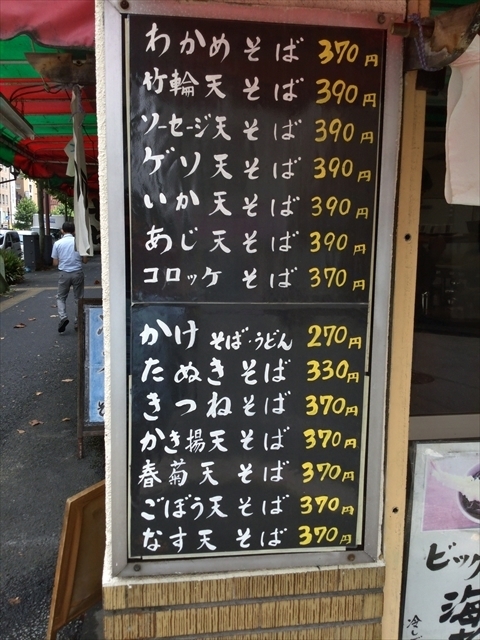 わかめそば 370円
竹輪天そば 390円
ソーセージ天そば 390円
ゲソ天そば 390円
いか天そば 390円
あじ天そば 390円
コロッケそば 370円
かけそば・うどん 270円
たぬきそば 330円
きつねそば 370円
かき揚天そば 370円
春菊天そば 370円
ごぼう天そば 370円
なす天そば 370円
ビッ
海
冷し